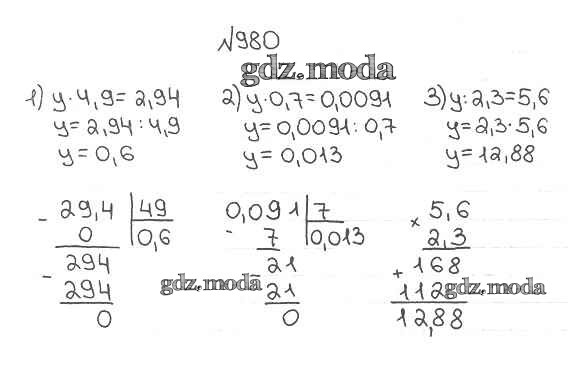 №980
gdz.moda
1) y·4,9=2,94
y=2,94:4,9
y=0,6
2) y·0,7=0,0091
y=0,0091:0,7
y=0,013
3) y:2,3=5,6
y=2,3·5,6
y=12,88
- 29,4 | 49
0 | 0,6
- 294
294
0
0,091 | 7
- 7 | 0,013
21
21
0
gdz.moda
× 5,6
2,3
+ 168
112
12,88
gdz.moda